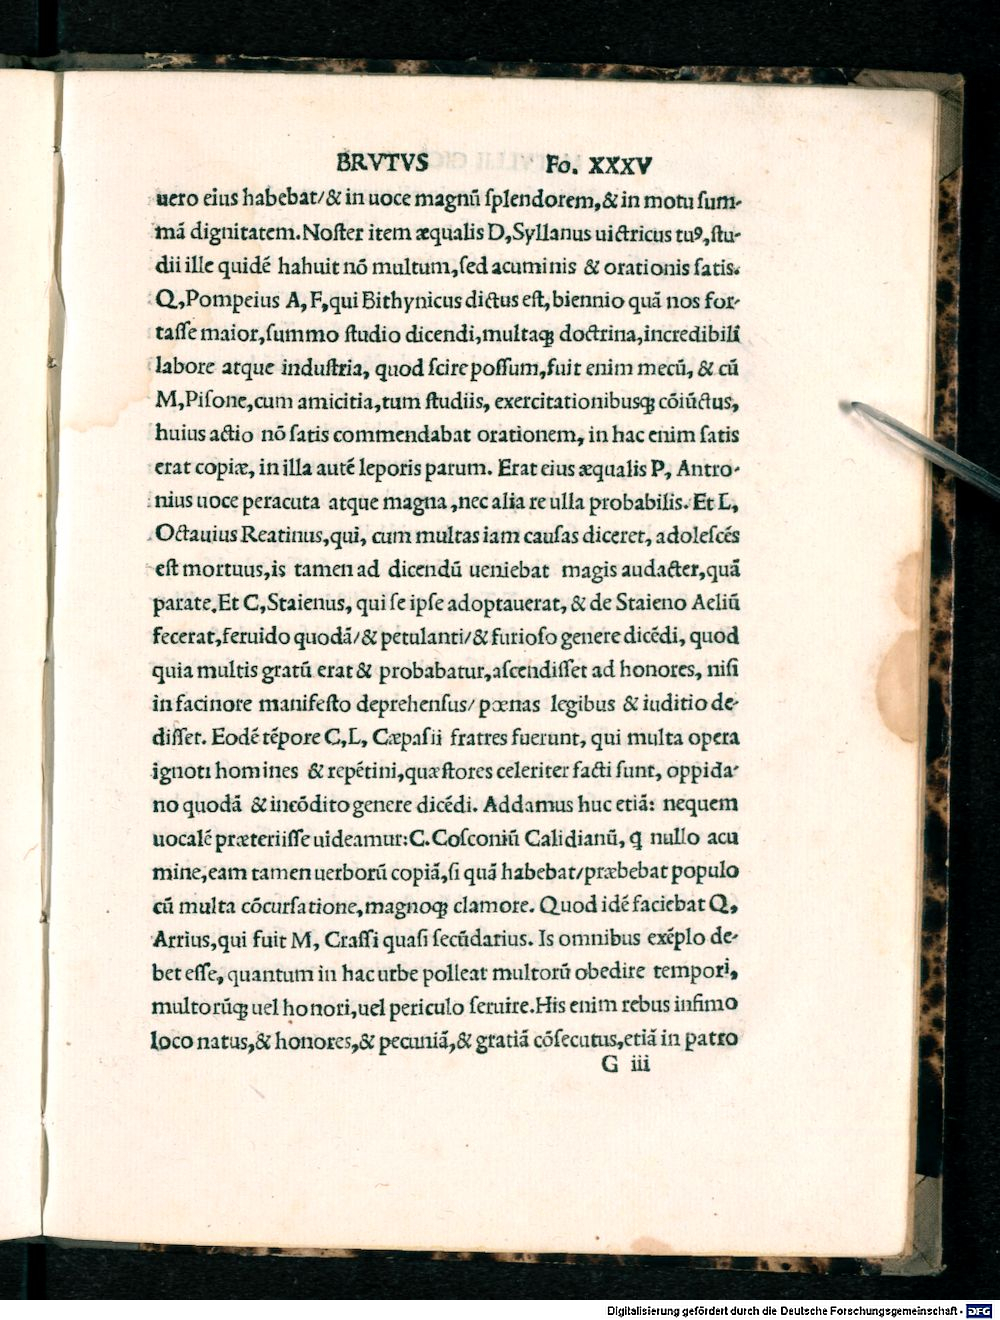 BRVTVS Fo. XXXV
uero eius habebat/& in uoce magnū ſplendorem,& in motu ſum-
mā dignitatem.Noſter item æqualis D,Syllanus uictricus tuꝰ,ſtu-
dii ille quidē hahuit nō multum,ſed acuminis & orationis ſatis.
Q,Pompeius A, F,qui Bithynicus dictus eſt, biennio quā nos for-
taſſe maior,ſummo ſtudio dicendi,multaqꝫ doctrina,incredibili
labore atque induſtria, quod ſcire poſſum,fuit enim mecū, & cū
M,Piſone,cum amicitia,tum ſtudiis, exercitationibusqꝫ cōiūctus,
huius actio nō ſatis commendabat orationem, in hac enim ſatis
erat copiæ, in illa autē leporis parum. Erat eius æqualis P, Antro-
nius uoce peracuta atque magna ,nec alia re ulla probabilis. Et L,
Octauius Reatinus,qui, cum multas iam cauſas diceret, adoleſcēs
eſt mortuus,is tamen ad dicendū ueniebat magis audacter,quā
parate.Et C,Staienus, qui ſe ipſe adoptauerat, & de Staieno Aeliū
fecerat,feruido quodā/& petulanti/& furioſo genere dicēdi, quod
quia multis gratū erat & probabatur,aſcendiſſet ad honores, niſi
in facinore manifeſto deprehenſus/ pœnas legibus & iuditio de-
diſſet. Eodē tēpore C,L, Cæpaſii fratres fuerunt, qui multa opera
ignoti homines & repētini,quæſtores celeriter facti ſunt, oppida-
no quodā & incōdito genere dicēdi. Addamus huc etiā: nequem
uocalē præteriiſſe uideamur:C.Coſconiū Calidianū, ꝗ nullo acu
mine,eam tamen uerborū copiā,ſi quā habebat/præbebat populo
cū multa cōcurſatione,magnoqꝫ clamore. Quod idē faciebat Q,
Arrius,qui fuit M, Craſſi quaſi ſecūdarius. Is omnibus exēplo de-
bet eſſe, quantum in hac urbe polleat multorū obedire tempori,
multorūqꝫ uel honori,uel periculo ſeruire.His enim rebus infimo
loco natus,& honores,& pecuniā,& gratiā cōſecutus,etiā in patro
G iii
Digitalisierung gefördert durch die Deutsche Forschungsgemeinschaft - DFG